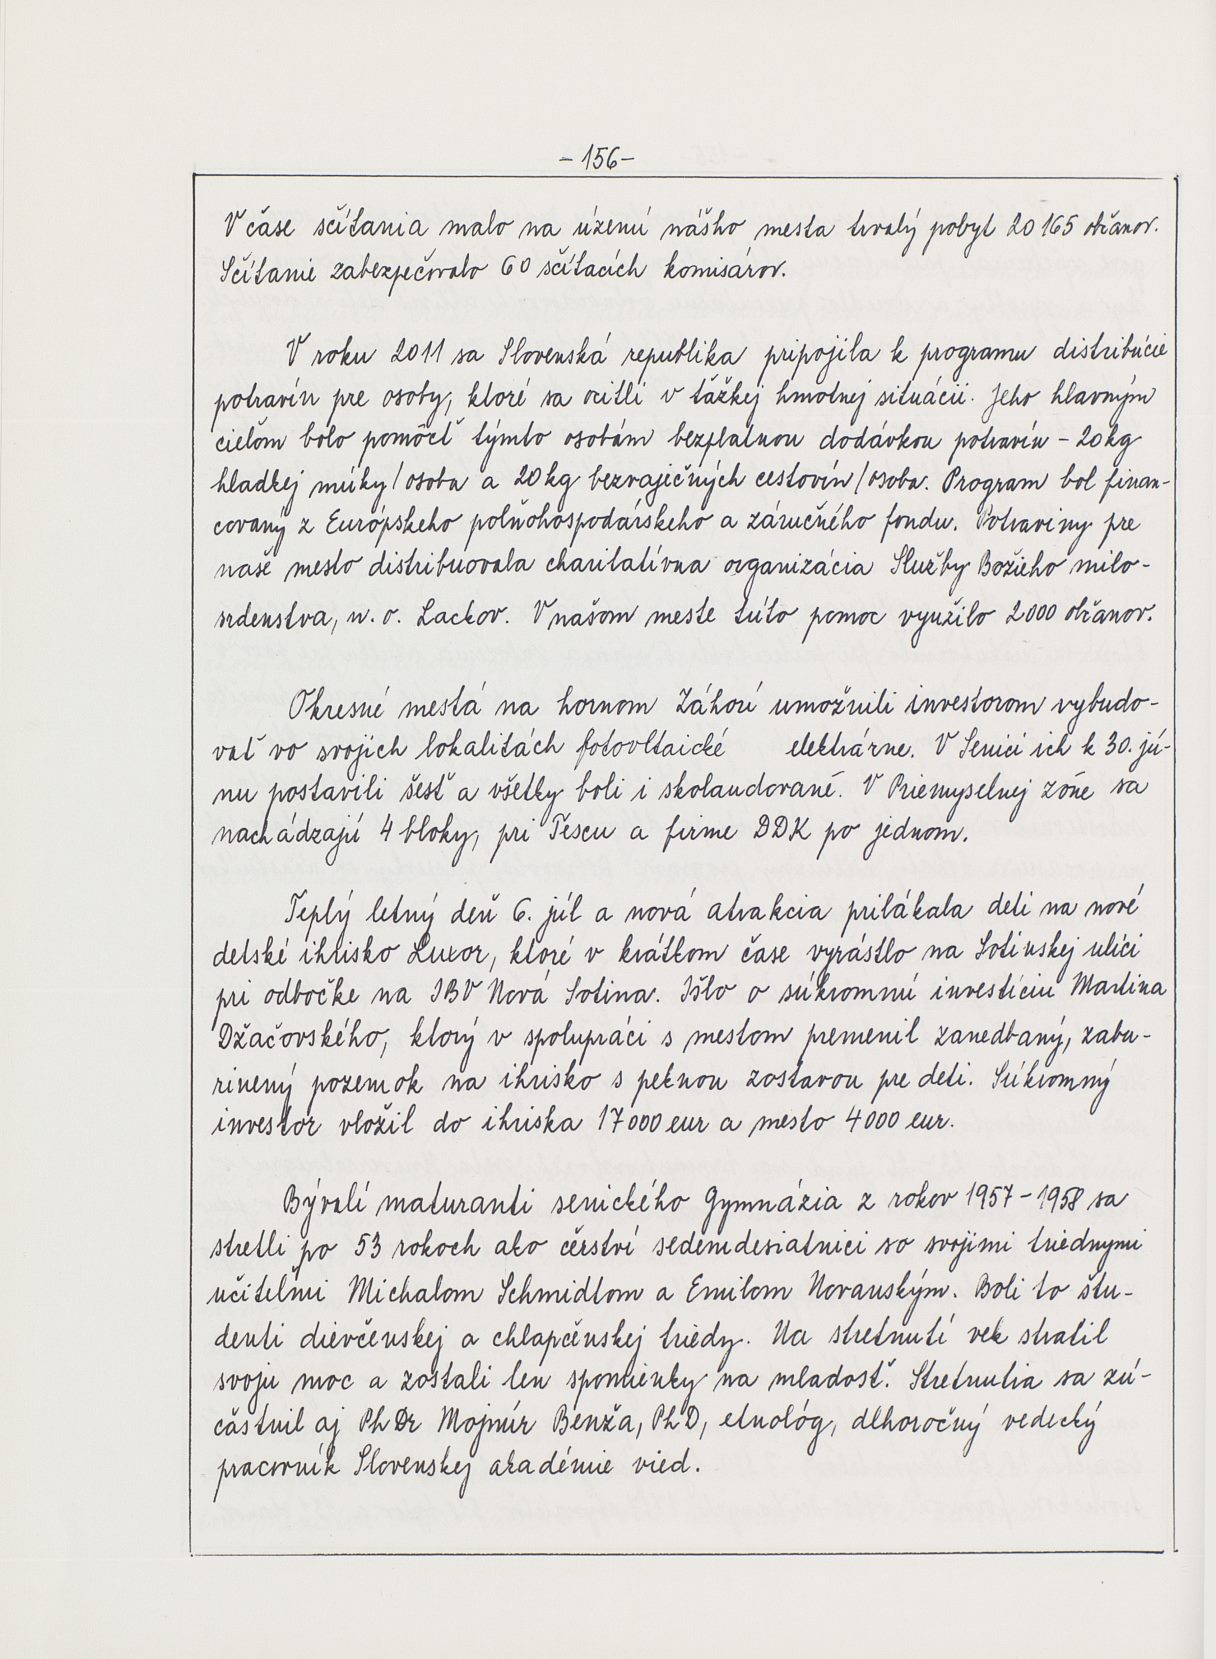 - 156 -
V čase sčítania malo na území nášho mesta trvalý pobyt 20 165 občanov.
Sčítanie zabezpečovalo 60 sčítacích komisárov.
V roku 2011 sa Slovenská republika pripojila k programu distribúcie
potravín pre osoby, ktoré sa ocitli v ťažkej hmotnej situácii. Jeho hlavným
cieľom bolo pomôcť týmto osobám bezplatnou dodávkou potravín - 20 kg
hladkej múky/osoba a 20 kg bezvaječných cestovín/osoba. Program bol finan-
covaný z Európskeho poľnohospodárskeho a záručného fondu. Potraviny pre
naše mesto distribuovala charitatívna organizácia Služby Božieho milo-
srdenstva, n. o. Lackov. V našom meste túto pomoc využilo 2 000 občanov.
Okresné mestá na hornom Záhorí umožnili investorom vybudo-
vať vo svojich lokalitách fotovltaické elektrárne. V Senici ich k 30. jú-
nu postavili šesť a všetky boli i skolaudované. V Priemyselnej zóne sa
nachádzajú 4 bloky, pri Tescu a firme DDK po jednom.
Teplý letný deň 6. júl a nová atrakcia prilákala deti na nové
detské ihrisko Luxor, ktoré v krátkom čase vyrástlo na Sotinskej ulici
pri odbočke na IBV Nová Sotina. Išlo o súkromnú investíciu Martina
Džačovského, ktorý v spolupráci s mestom premenil zanedbaný, zabu-
rinený pozemok na ihrisko s peknou zostavou pre deti. Súkromný
investor vložil do ihriska 17 000 eur a mesto 4 000 eur.
Bývalí maturanti senického Gymnázia z rokov 1957 - 1958 sa
stretli po 53 rokoch ako čerství sedemdesiatnici so svojimi triednymi
učiteľmi Michalom Schmidtom a Emilom Novanským. Boli to štu-
denti dievčenskej a chlapčenskej triedy. Na stretnutí vek stratil
svoju moc a zostali len spomienky na mladosť. Stretnutia sa zú-
častnil aj PhDr Mojmír Benža, PhD, etnológ, dlhoročný vedecký
pracovník Slovenskej akadémie vied.